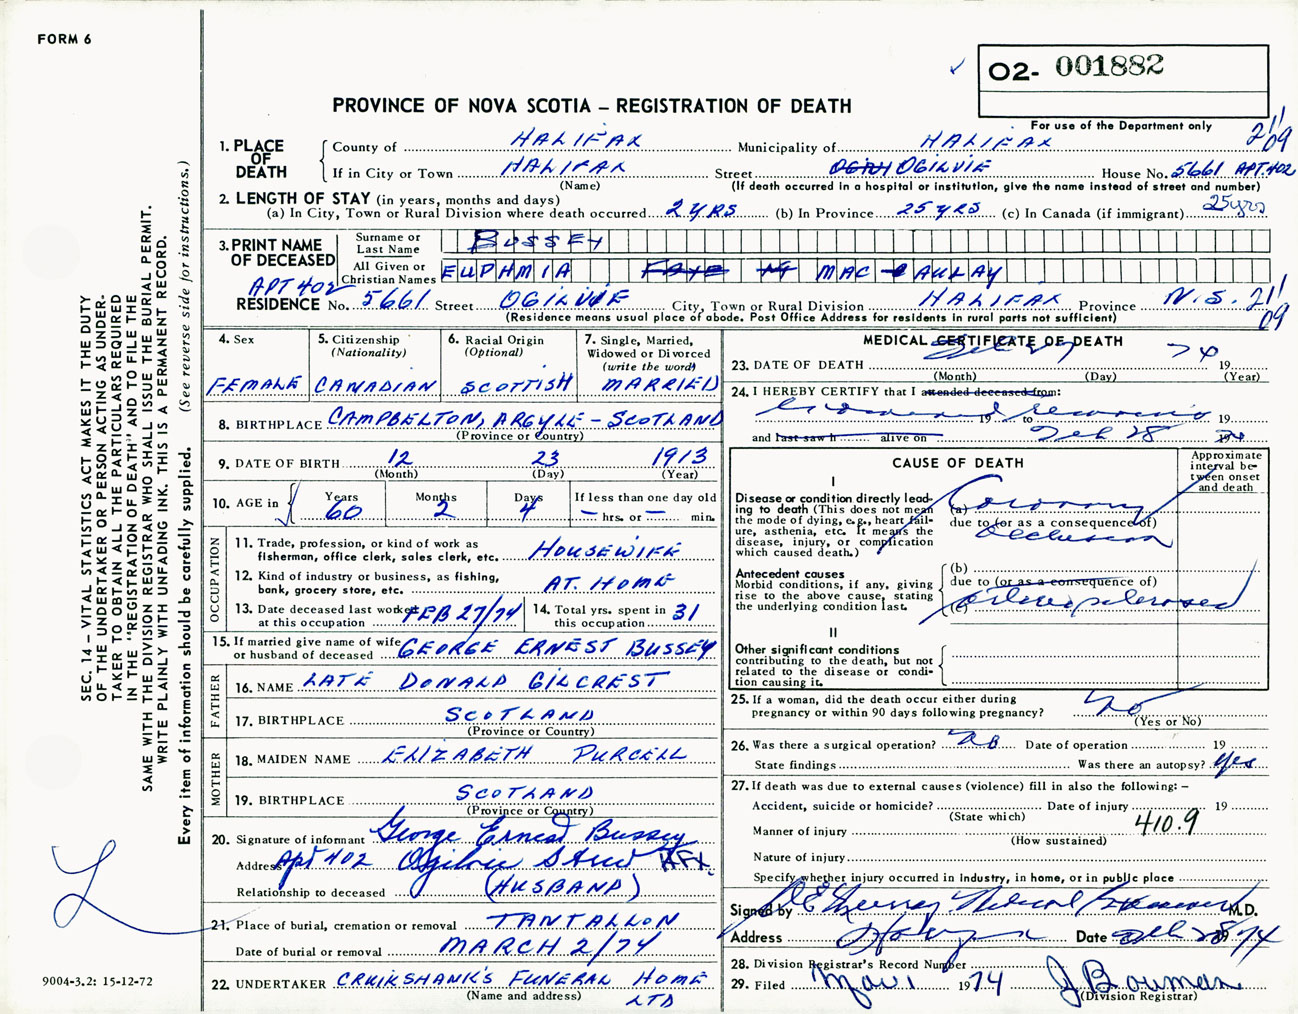 FORM 6
O2- 001882
PROVINCE OF NOVA SCOTIA – REGISTRATION OF DEATH
For use of the Department only
211
09
1. PLACE OF DEATH
County of HALIFAX Municipality of HALIFAX
If in City or Town HALIFAX Street OGILVIE House No. 5661 APT. 402
(Name) (If death occurred in a hospital or institution, give the name instead of street and number)
2. LENGTH OF STAY (in years, months and days)
(a) In City, Town or Rural Division where death occurred 2 YRS (b) In Province 25 YRS (c) In Canada (if immigrant) 25 yrs
3. PRINT NAME OF DECEASED
Surname or Last Name BUSSEY
All Given or Christian Names EUPHMIA FAYE MACAULAY
APT 402
RESIDENCE No. 5661 Street OGILVIE City, Town or Rural Division HALIFAX Province N.S. 211
09
(Residence means usual place of abode. Post Office Address for residents in rural parts not sufficient)
4. Sex
FEMALE
5. Citizenship
(Nationality)
CANADIAN
6. Racial Origin
(Optional)
SCOTTISH
7. Single, Married,
Widowed or Divorced
(write the word)
MARRIED
8. BIRTHPLACE CAMPBELTON, ARGYLE – SCOTLAND
(Province or Country)
9. DATE OF BIRTH 12 23 1913
(Month) (Day) (Year)
10. AGE in Years Months Days If less than one day old
60 2 4 — hrs. or — min.
OCCUPATION
11. Trade, profession, or kind of work as
fisherman, office clerk, sales clerk, etc. HOUSEWIFE
12. Kind of industry or business, as fishing,
bank, grocery store, etc. AT HOME
13. Date deceased last worked
at this occupation FEB 27/74
14. Total yrs. spent in
this occupation 31
15. If married give name of wife
or husband of deceased GEORGE ERNEST BUSSEY
FATHER
16. NAME LATE DONALD GILCREST
17. BIRTHPLACE SCOTLAND
(Province or Country)
MOTHER
18. MAIDEN NAME ELIZABETH PURCELL
19. BIRTHPLACE SCOTLAND
(Province or Country)
20. Signature of informant George Ernest Bussey
Address Apt 402 Ogilvie Street HFX.
Relationship to deceased (HUSBAND)
21. Place of burial, cremation or removal TANTALLON
Date of burial or removal MARCH 2/74
22. UNDERTAKER CRUIKSHANK'S FUNERAL HOME
(Name and address) LTD
MEDICAL CERTIFICATE OF DEATH
23. DATE OF DEATH Feb 27 74 19
(Month) (Day) (Year)
24. I HEREBY CERTIFY that I attended deceased from:
19 to 19
and last saw h alive on Feb 28 1974
CAUSE OF DEATH
Approximate
interval be-
tween onset
and death
I
Disease or condition directly lead-
ing to death (This does not mean
the mode of dying, e.g., heart fail-
ure, asthenia, etc. It means the
disease, injury, or complication
which caused death.)
(a) Coronary
due to (or as a consequence of)
occlusion
Antecedent causes
Morbid conditions, if any, giving
rise to the above cause, stating
the underlying condition last.
(b)
due to (or as a consequence of)
(c)
II
Other significant conditions
contributing to the death, but not
related to the disease or condi-
tion causing it.
25. If a woman, did the death occur either during
pregnancy or within 90 days following pregnancy? no
(Yes or No)
26. Was there a surgical operation? no Date of operation 19
State findings Was there an autopsy? yes
27. If death was due to external causes (violence) fill in also the following: –
Accident, suicide or homicide? Date of injury 19
(State which)
410.9
Manner of injury
(How sustained)
Nature of injury
Specify whether injury occurred in industry, in home, or in public place
Signed by Medical Examiner M.D.
Address Date Feb 28 74
28. Division Registrar's Record Number
29. Filed Mar 1 1974 J Bowman
(Division Registrar)
SEC. 14 – VITAL STATISTICS ACT MAKES IT THE DUTY
OF THE UNDERTAKER OR PERSON ACTING AS UNDER-
TAKER TO OBTAIN ALL THE PARTICULARS REQUIRED
IN THE "REGISTRATION OF DEATH" AND TO FILE THE
SAME WITH THE DIVISION REGISTRAR WHO SHALL ISSUE THE BURIAL PERMIT.
WRITE PLAINLY WITH UNFADING INK. THIS IS A PERMANENT RECORD.
Every item of information should be carefully supplied. (See reverse side for instructions.)
9004-3.2: 15-12-72